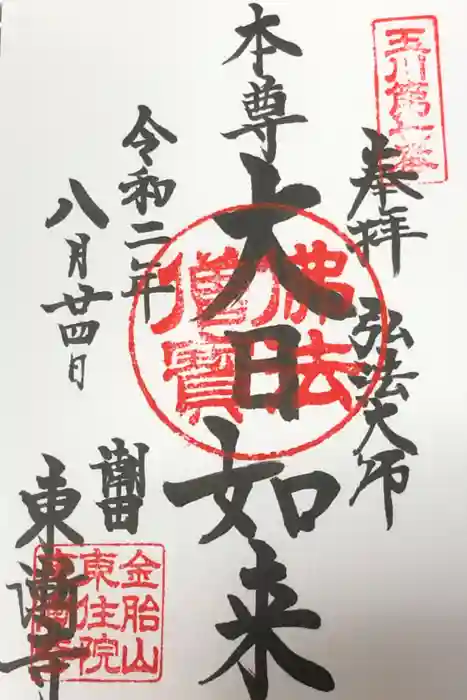 玉川第七番
奉拝 弘法大師
本尊 大日如来
佛法
僧寶
令和二年
八月廿四日
潮田
東漸寺
金胎山
東住院